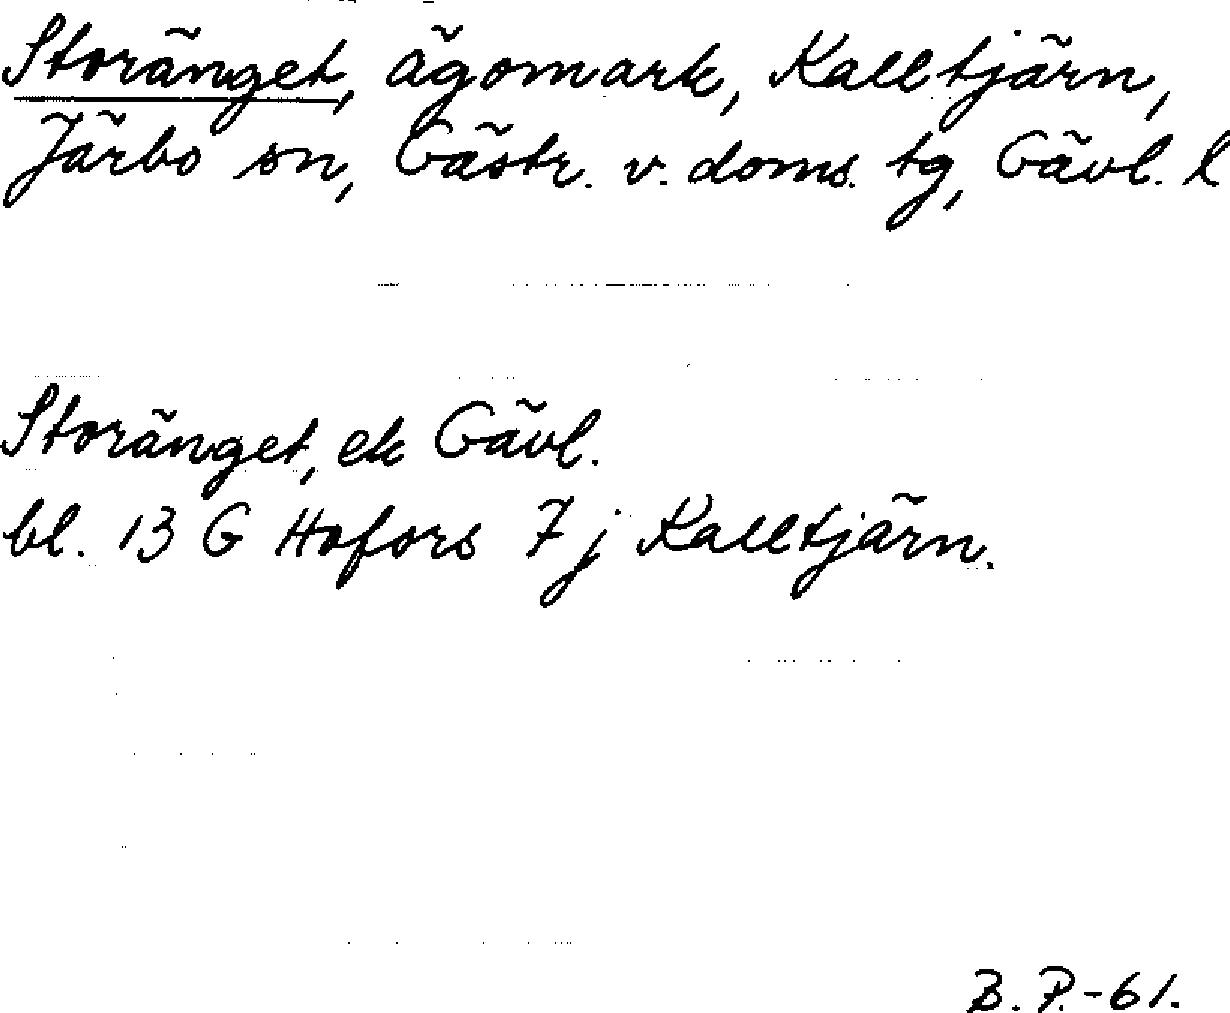 Storänget, ägomark, Kalltjärn,
Järbo sn, Gästr. v. doms. tg, Gävl. l
Storänget, ek Gävl.
bl. 13 G Hofors 7 j Kalltjärn.
B. P.-61.